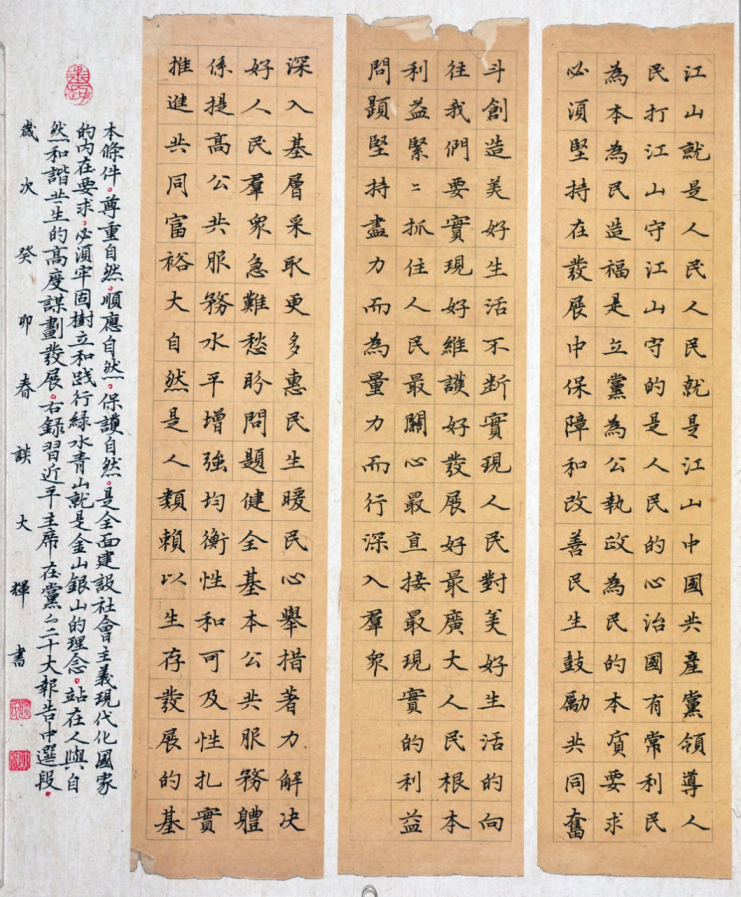 江山就是人民人民就是江山中國共產黨領導人
民打江山守江山守的是人民的心治國有常利民
為本為民造福是立黨為公執政為民的本質要求
必須堅持在發展中保障和改善民生鼓勵共同奮
斗創造美好生活不斷實現人民對美好生活的向
往我們要實現好維護好發展好最廣大人民根本
利益緊〻抓住人民最關心最直接最現實的利益
問題堅持盡力而為量力而行深入羣眾
深入基層采取更多惠民生暖民心舉措著力解决
好人民羣眾急難愁盼問題健全基本公共服務體
係提高公共服務水平增強均衡性和可及性扎實
推進共同富裕大自然是人類賴以生存發展的基
本條件。尊重自然。順應自然。保護自然。是全面建設社會主義現代化國家
的內在要求。必須牢固樹立和踐行綠水青山就是金山銀山的理念。站在人與自
然和諧共生的高度謀劃發展。右錄習近平主席在黨的二十大報告中選段。
歲次癸卯春談大輝書